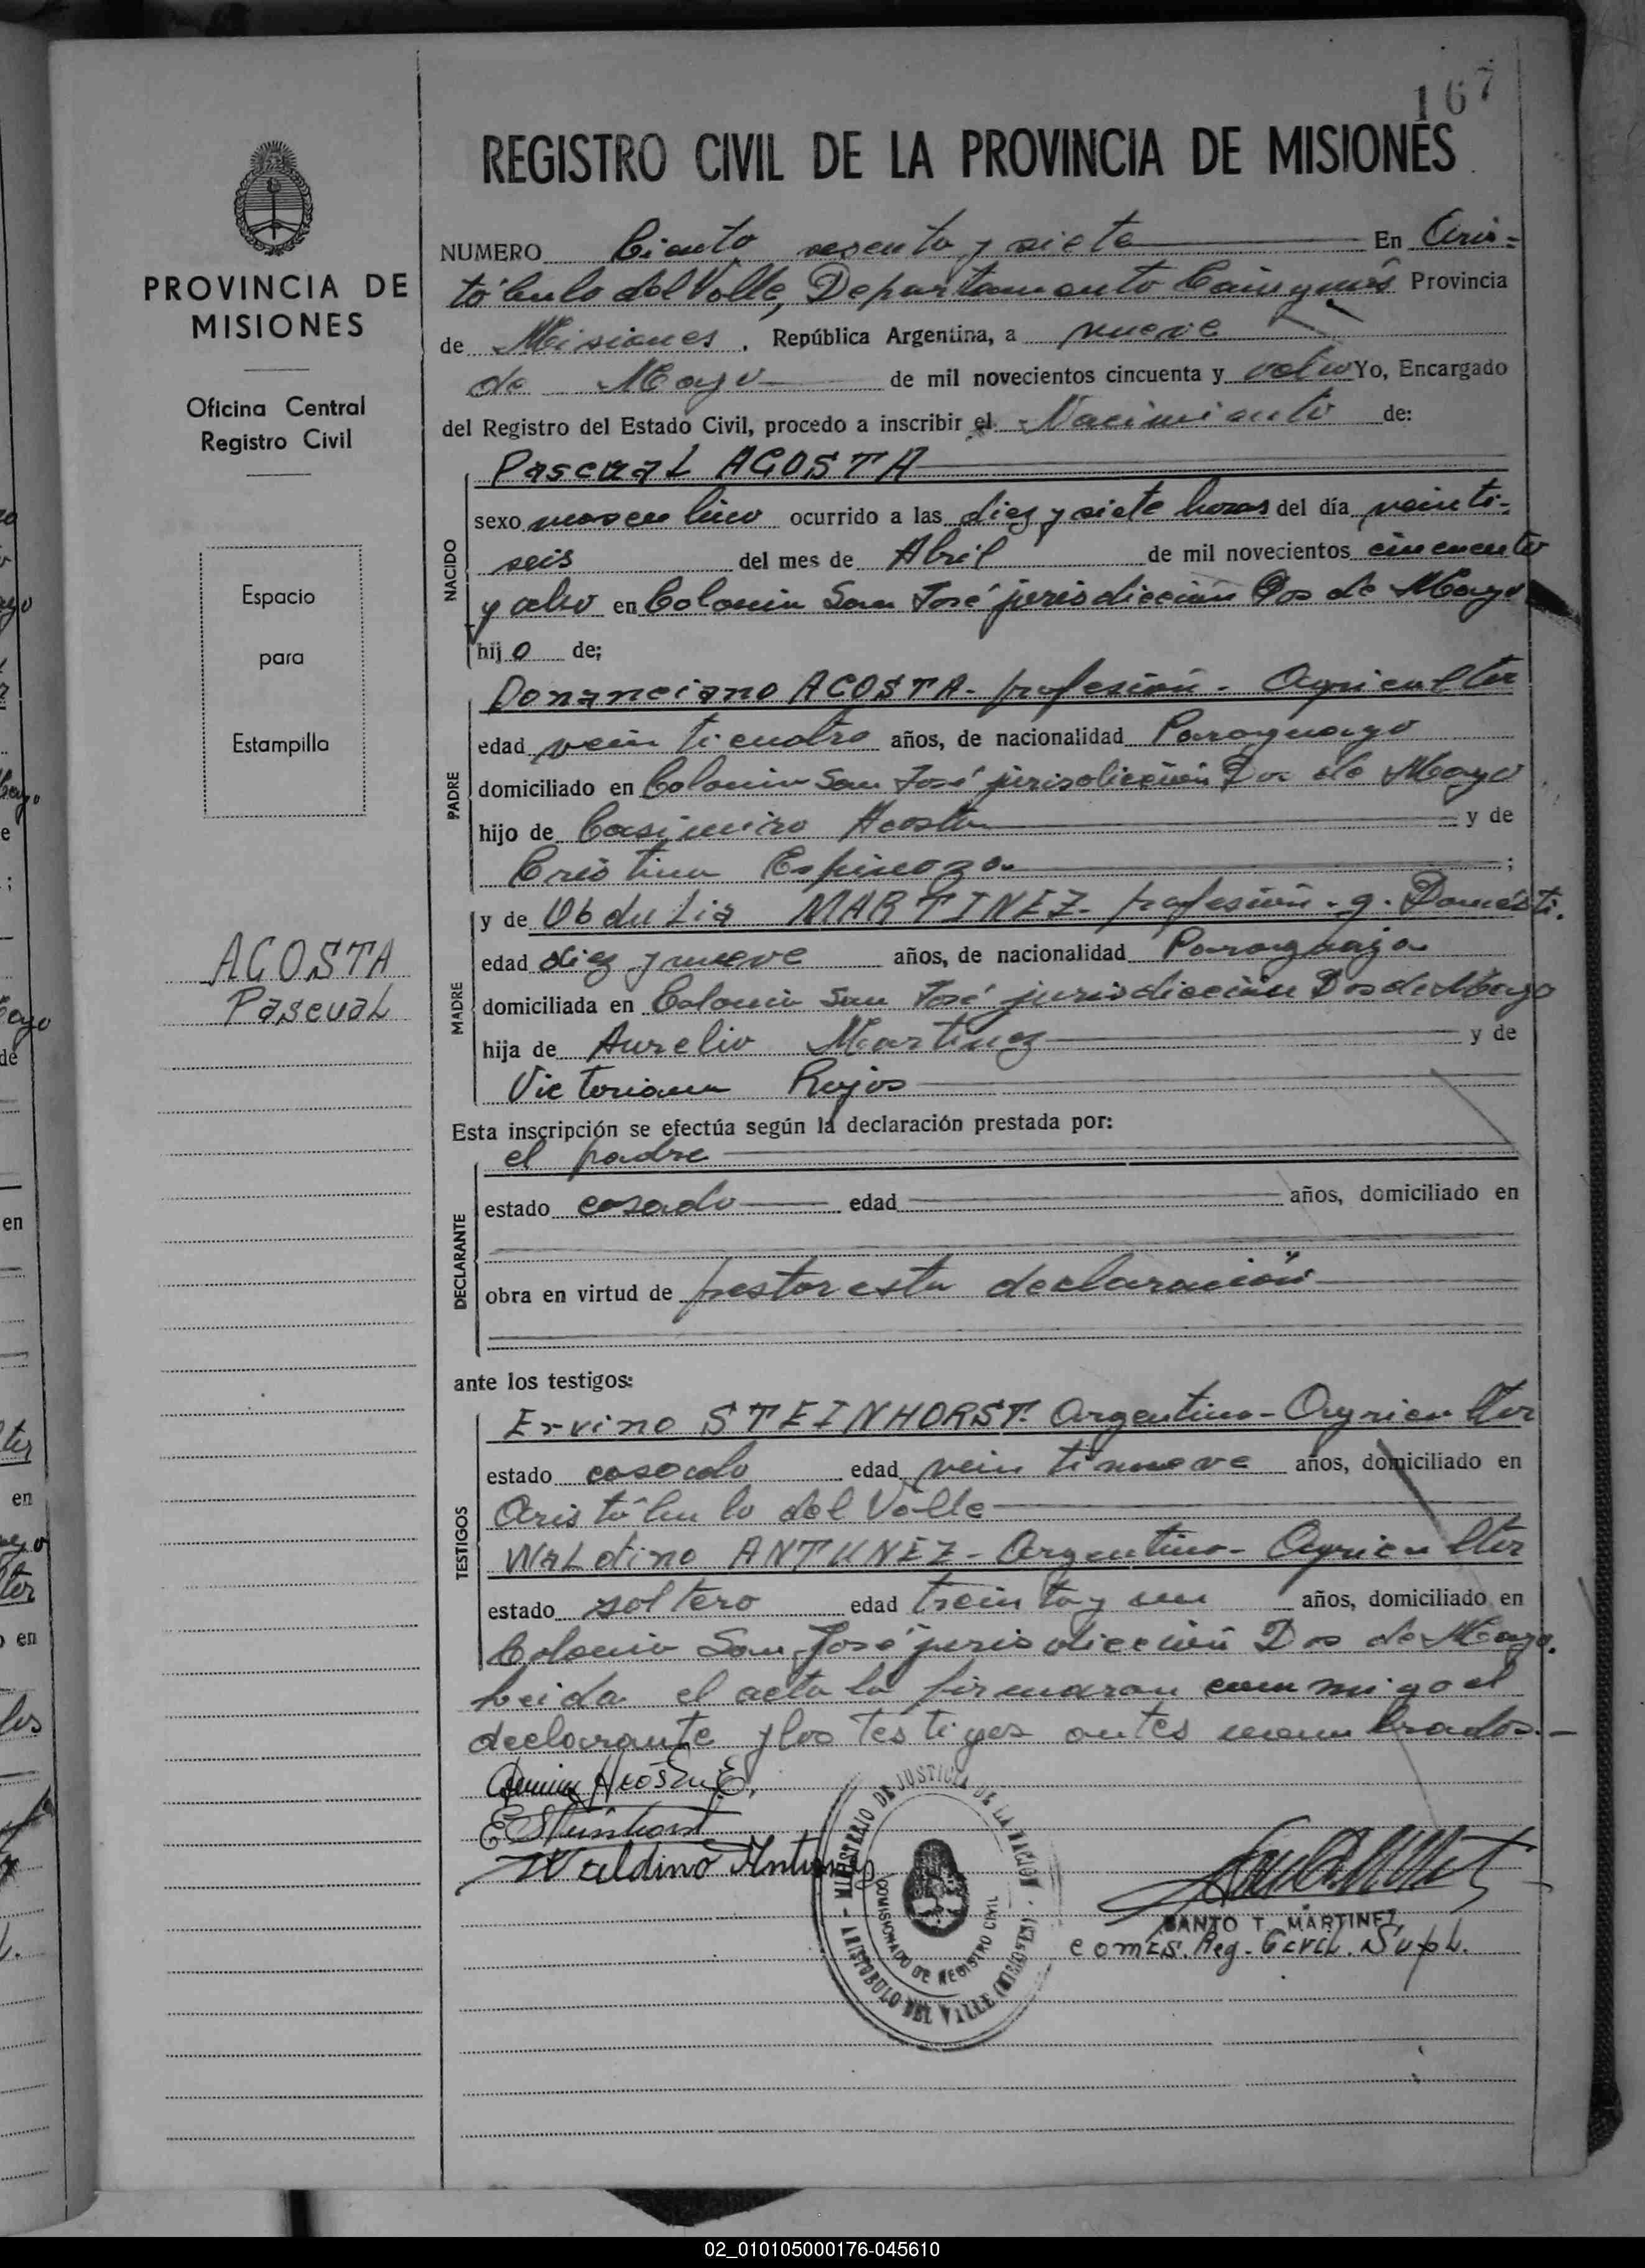 167
REGISTRO CIVIL DE LA PROVINCIA DE MISIONES
PROVINCIA DE
MISIONES
Oficina Central
Registro Civil
Espacio
para
Estampilla
ACOSTA
Pascual
NUMERO Ciento sesenta y siete En Aris-
tóbulo del Valle, Departamento Cainguás Provincia
de Misiones, República Argentina, a nueve
de Mayo de mil novecientos cincuenta y ocho Yo, Encargado
del Registro del Estado Civil, procedo a inscribir el Nacimiento de:
NACIDO
Pascual ACOSTA
sexo masculino ocurrido a las diez y siete horas del día veinti-
seis del mes de Abril de mil novecientos cincuenta
y ocho en Colonia San José jurisdicción Dos de Mayo
hijo de;
PADRE
Donanciano ACOSTA- profesión - Agricultor
edad veinticuatro años, de nacionalidad Paraguayo
domiciliado en Colonia San José jurisdicción Dos de Mayo
hijo de Casimiro Acosta y de
Cristina Espinoza ;
MADRE
y de Obdulia MARTINEZ- profesión - q. Domésti.
edad diez y nueve años, de nacionalidad Paraguaya
domiciliada en Colonia San José jurisdicción Dos de Mayo
hija de Aurelio Martinez y de
Victoriana Rojas
Esta inscripción se efectúa según la declaración prestada por:
DECLARANTE
el padre
estado casado edad años, domiciliado en
obra en virtud de prestar esta declaración
ante los testigos:
TESTIGOS
Ervino STEINHORST- Argentino- Agricultor
estado casado edad veintinueve años, domiciliado en
Aristóbulo del Valle
Waldino ANTUNEZ- Argentino- Agricultor
estado soltero edad treinta y un años, domiciliado en
Colonia San José jurisdicción Dos de Mayo.
Leida el acta la firmaron conmigo el
declarante y los testigos antes nombrados.-
Acosta E.
E Steinhorst
Waldino Antunez
MINISTERIO DE JUSTICIA DE LA NACION
COMISIONADO DE REGISTRO CIVIL
ARISTOBULO DEL VALLE (MISIONES)
SANTO T. MARTINEZ
Comis. Reg. Civil. Supl.
02_010105000176-045610